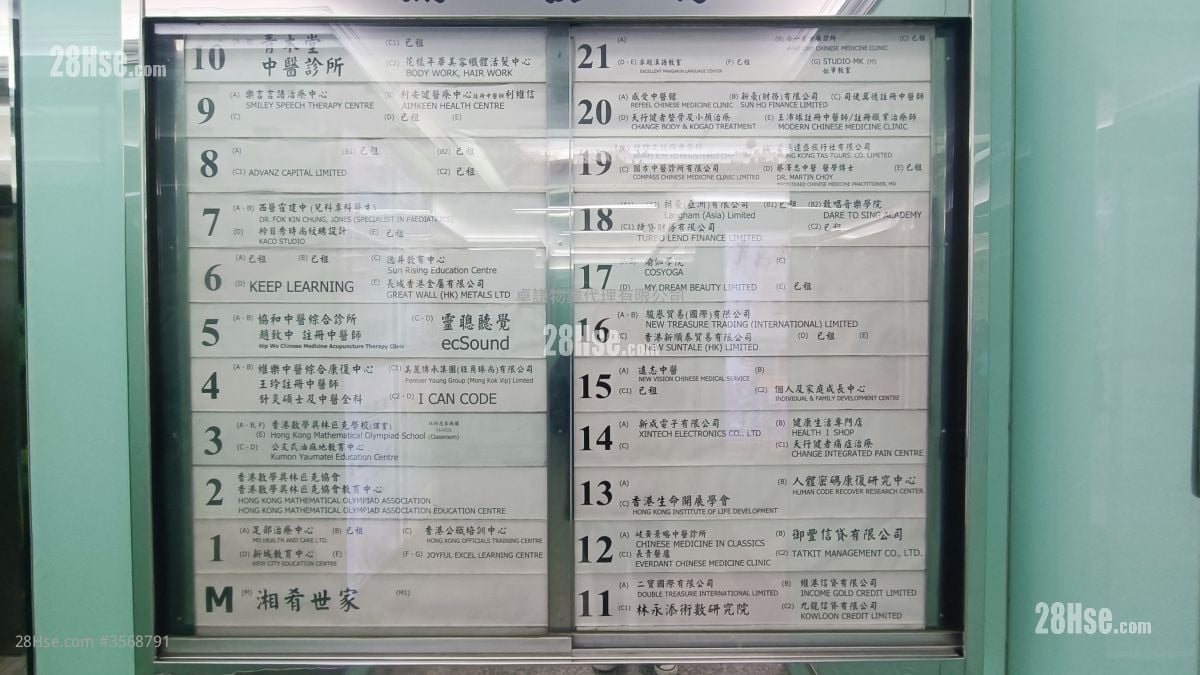 28Hse.com
10
青木堂
中醫診所
(C1) 已租
(C2) 花樣年華美容纖體活髮中心
BODY WORK, HAIR WORK
9
(A) 樂言言語治療中心
SMILEY SPEECH THERAPY CENTRE
(B) 利安健醫療中心註冊中醫師利維信
AIMKEEN HEALTH CENTRE
(C)
(D) 已租
(E)
8
(A)
(B1) 已租
(B2) 已租
(C1) ADVANZ CAPITAL LIMITED
(C2) 已租
7
(A - B) 西醫霍建中 (兒科專科醫生)
DR. FOK KIN CHUNG, JONES (SPECIALIST IN PAEDIATRICS)
(D) 衿目秀時尚紋繡設計
KACO STUDIO
(E) 已租
6
(A) 已租
(B) 已租
(C) 逸昇教育中心
Sun Rising Education Centre
(D) KEEP LEARNING
(E) 長城香港金屬有限公司
GREAT WALL (HK) METALS LTD
5
(A - B) 協和中醫綜合診所
趙致中 註冊中醫師
Hip Wo Chinese Medicine Acupuncture Therapy Clinic
(C - D) 靈聰聽覺
ecSound
4
(A - B) 維樂中醫綜合康復中心
王玲註冊中醫師
針灸碩士及中醫全科
(C1) 美麗傳承集團(旺角臻尚)有限公司
Forever Young Group (Mong Kok Vip) Limited
(C2 - D) I CAN CODE
3
(A - B, F) 香港數學奧林匹克學校(課室)
(E) Hong Kong Mathematical Olympiad School (Classroom)
(C - D) 公文式油麻地教育中心
Kumon Yaumatei Education Centre
2
香港數學奧林匹克協會
香港數學奧林匹克協會教育中心
HONG KONG MATHEMATICAL OLYMPIAD ASSOCIATION
HONG KONG MATHEMATICAL OLYMPIAD ASSOCIATION EDUCATION CENTRE
1
(A) 足部治療中心
MD HEALTH AND CARE LTD.
(B) 已租
(C) 香港公職培訓中心
HONG KONG OFFICIALS TRAINING CENTRE
(D) 新城教育中心
NEW CITY EDUCATION CENTRE
(E)
(F - G) JOYFUL EXCEL LEARNING CENTRE
M
(M) 湘肴世家
(M1)
21
(A)
CHINESE MEDICINE CLINIC
(C) 已租
(D - E) 卓越漢語教室
EXCELLENT MANDARIN LANGUAGE CENTER
(F) 已租
(G) STUDIO-MK (M)
20
(A) 感受中醫館
REFEEL CHINESE MEDICINE CLINIC
(B) 新豪(財務)有限公司
SUN HO FINANCE LIMITED
(C) 司徒萬德註冊中醫師
(D) 天行健者整骨及小顏治療
CHANGE BODY & KOGAO TREATMENT
(E) 王沛嫁註冊中醫師/註冊職業治療師
MODERN CHINESE MEDICINE CLINIC
19
香港達盛旅行社有限公司
HONG KONG TAS TOURS. CO. LIMITED
(C) 國方中醫診所有限公司
COMPASS CHINESE MEDICINE CLINIC LIMITED
(D) 蔡澤忠中醫 醫學博士
DR. MARTIN CHOY
REGISTERED CHINESE MEDICINE PRACTITIONER, MD
(E) 已租
18
朗豪(亞洲)有限公司
Langham (Asia) Limited
(B1) 已租
(B2) 敢唱音樂學院
DARE TO SING ACADEMY
(C1) 捷貸財務有限公司
TURBO LEND FINANCE LIMITED
(C2) 已租
17
瑜伽學院
COSYOGA
(C)
(D) MY DREAM BEAUTY LIMITED
(E) 已租
卓誠物業代理有限公司
28Hse.com
16
(A - B) 駿譽貿易(國際)有限公司
NEW TREASURE TRADING (INTERNATIONAL) LIMITED
(C) 香港新順泰貿易有限公司
NEW SUNTALE (HK) LIMITED
(D) 已租
(E)
15
(A) 遠志中醫
NEW VISION CHINESE MEDICAL SERVICE
(B)
(C1) 已租
(C2) 個人及家庭成長中心
INDIVIDUAL & FAMILY DEVELOPMENT CENTRE
14
(A) 新成電子有限公司
XINTECH ELECTRONICS CO., LTD
(B) 健康生活專門店
HEALTH I SHOP
(C)
(C1) 天行健者痛症治療
CHANGE INTEGRATED PAIN CENTRE
13
(A)
(B) 人體密碼康復研究中心
HUMAN CODE RECOVER RESEARCH CENTER
(C) 香港生命開展學會
HONG KONG INSTITUTE OF LIFE DEVELOPMENT
12
(A) 岐黃景略中醫診所
CHINESE MEDICINE IN CLASSICS
(B) 御豐信貸有限公司
(C1) 長青醫廬
EVERDANT CHINESE MEDICINE CLINIC
(C2) TATKIT MANAGEMENT CO., LTD.
11
(A) 二寶國際有限公司
DOUBLE TREASURE INTERNATIONAL LIMITED
(B) 維港信貸有限公司
INCOME GOLD CREDIT LIMITED
(C1) 林永添術數研究院
(C2) 九龍信貸有限公司
KOWLOON CREDIT LIMITED
28Hse.com #3568791
28Hse.com